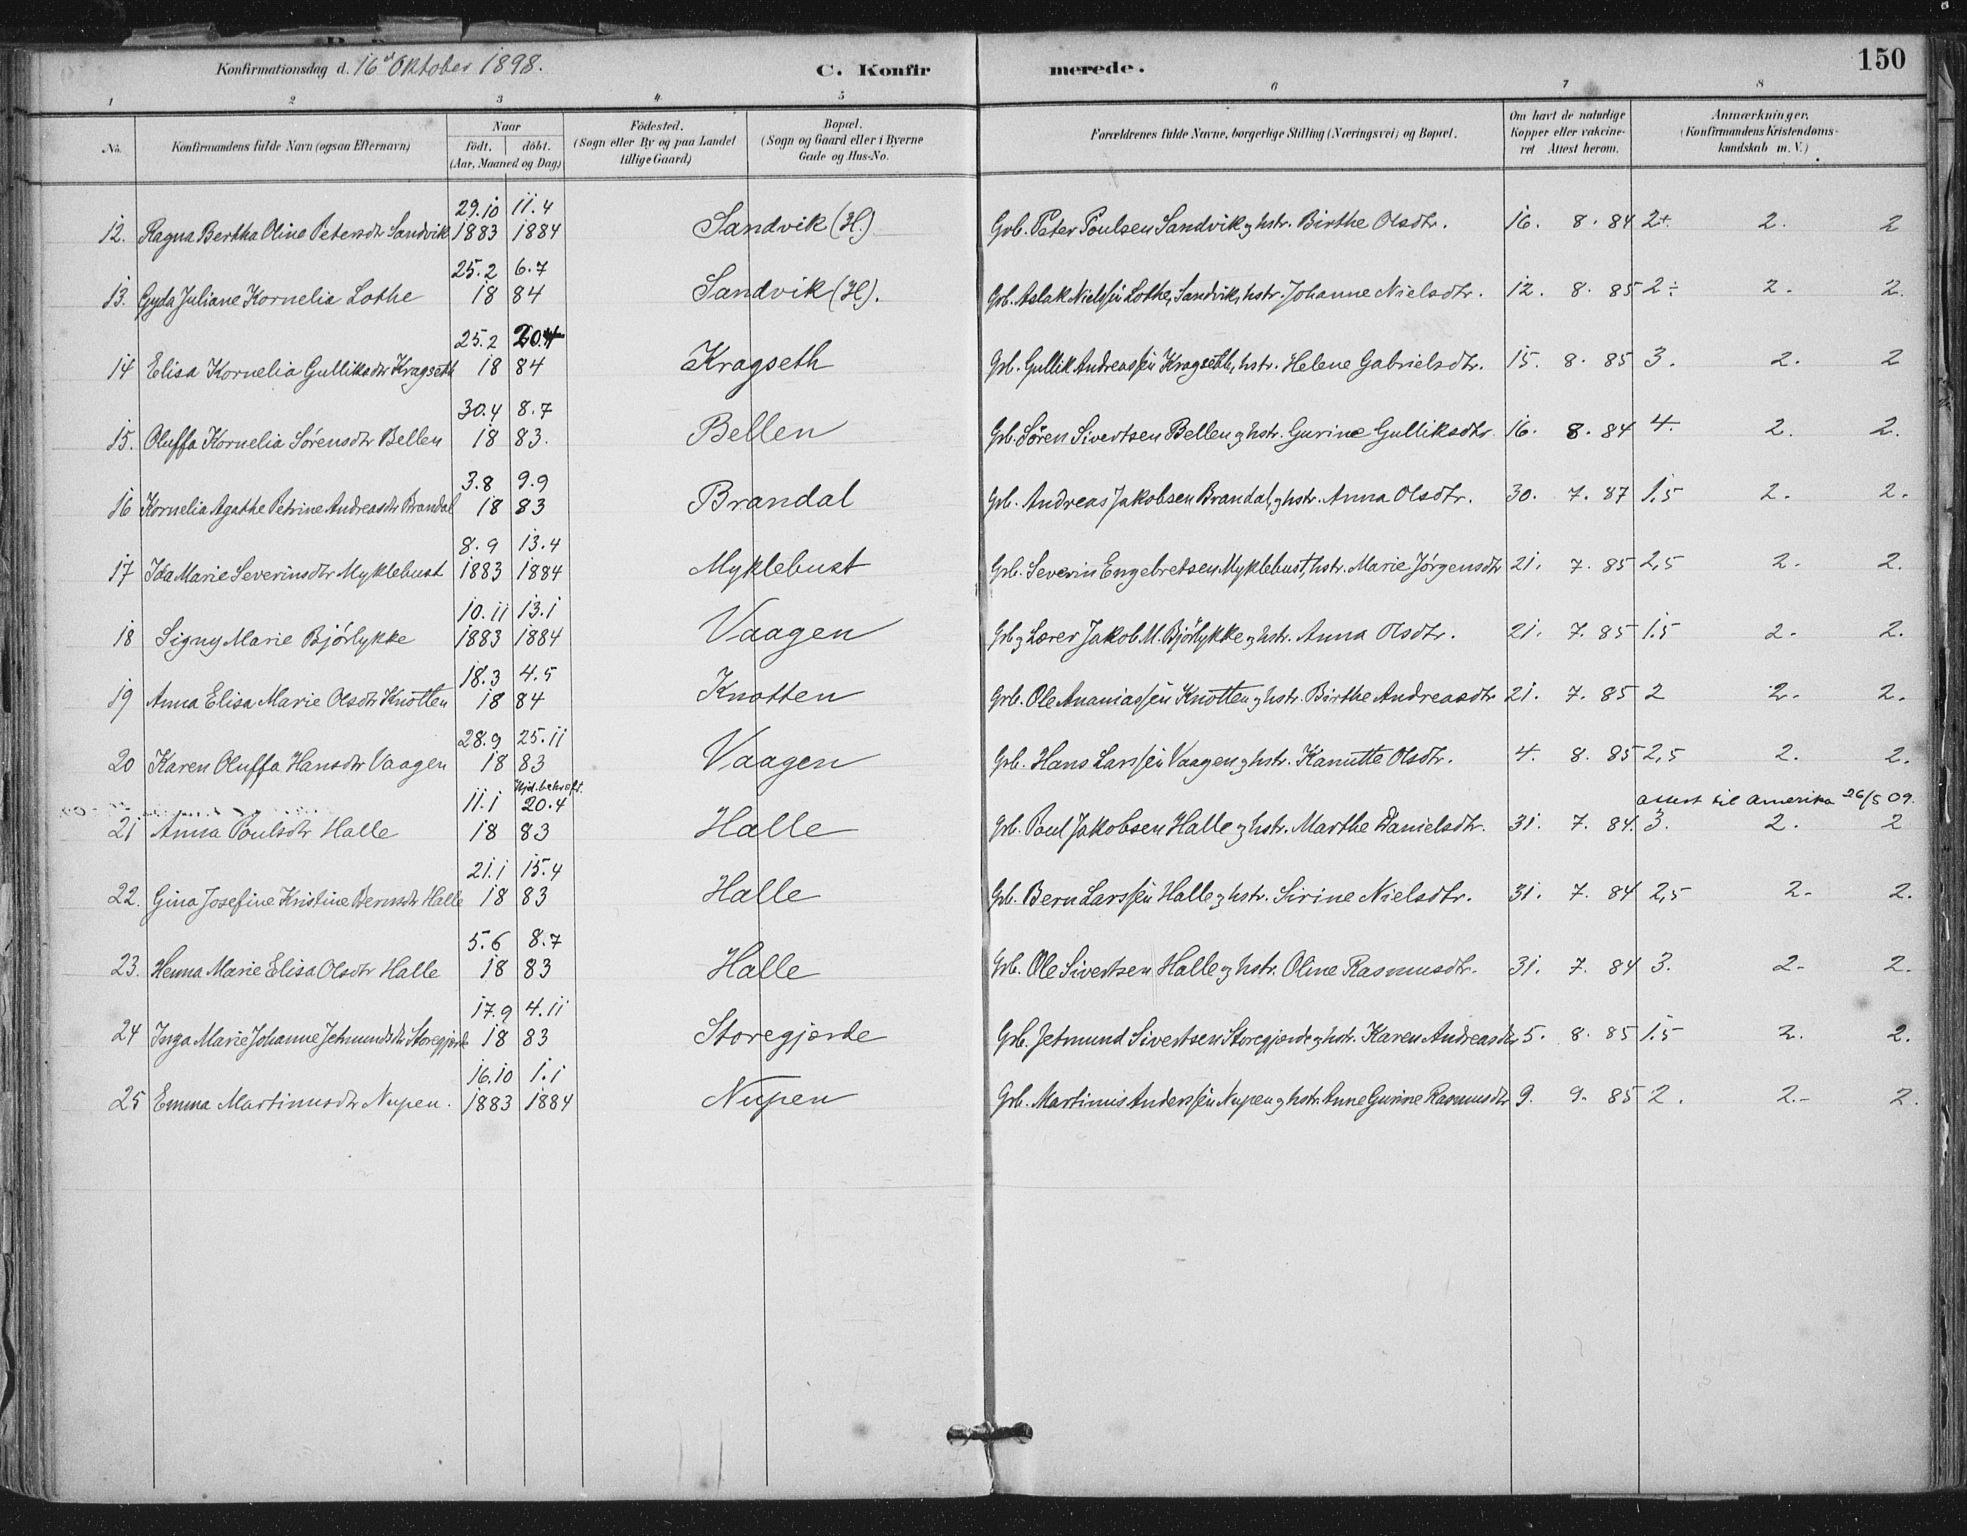 Konfirmationsdag d. 16de Oktober 1898. C. Konfirmerede. 150
1 2 3 4 5 6 7 8
No. Konfirmandens fulde Navn (ogsaa Efternavn) Naar født. døbt. (Aar, Maaned og Dag) Fødested. (Sogn eller By og paa Landet tillige Gaard) Bopæl. (Sogn og Gaard eller i Byerne Gade og Hus-No. Forældrenes fulde Navne, borgerlige Stilling (Næringsvei) og Bopæl. Om havt de naturlige Kopper eller vakcineret Attest herom. Anmærkninger. (Konfirmandens Kristendomskundskab m. V.)
29.10 11.4
12. Ragna Bertha Oline Petersdtr Sandvik 1883 1884 Sandvik (H.) Grb. Peter Poulsen Sandvik og hstr. Birthe Olsdtr. 16. 8. 84 2÷. 2. 2
25.2 6.7
13. Gyda Juliane Kornelia Lothe 18 84 Sandvik (H). Grb. Aslak Nielssen Lothe, Sandvik, hstr. Johanne Nielsdtr. 12. 8. 85 2÷ 2. 2.
25.2 20.4
14 Elisa Kornelia Gulliksdtr Kragseth 18 84 Kragseth Grb. Gullik Andreassen Kragseth, hstr. Helene Gabrielsdtr. 15. 8. 85 3. 2. 2
30.4 8.7
15. Oluffa Kornelia Sørensdtr Bellen 18 83. Bellen Grb. Sören Sivertsen Bellen og hstr. Gurine Gulliksdtr. 16. 8. 84 4. 2. 2.
3.8 9.9
16 Kornelia Agathe Petrine Andreasdtr Brandal 18 83 Brandal Grb. Andreas Jakobsen Brandal, og hstr. Anna Olsdtr. 30. 7. 87 1,5 2. 2.
8.9 13.4
17 Ida Marie Severinsdtr Myklebust 1883 1884 Myklebust Grb. Severin Engebretsen Myklebust, hstr. Marie Jørgensdtr 21. 7. 85 2,5 2. 2.
10.11 13.1
18 Signy Marie Bjørlykke 1883 1884 Vaagen Grb og Lærer Jakob M. Bjørlykke og hstr. Anna Olsdtr. 21. 7. 85 1.5 2. 2.
18.3 4.5
19 Anna Elisa Marie Olsdtr Knotten 18 84 Knotten Grb. Ole Ananiassen Knotten og hstr. Birthe Andreasdtr 21. 7. 85 2 2. 2.
28.9 25.11
20 Karen Oluffa Hansdtr Vaagen 18 83 Vaagen Grb. Hans Larssen Vaagen og hstr. Kanutte Olsdtr. 4. 8. 85 2,5 2. 2.
Hjd. bekræft.
11.1 20.4 attest til Amerika 26/5 09.
21 Anna Poulsdtr Halle 18 83 Halle Grb. Poul Jakobsen Halle og hstr. Marthe Danielsdtr. 31. 7. 84. 3. 2. 2
21.1 15.4
22. Gina Josefine Kristine Bernsdtr Halle 18 83 Halle Grb. Bern Larssen Halle og hstr. Sirine Nielsdtr. 31. 7. 84 2,5 2. 2.
5.6 8.7
23. Henna Marie Elisa Olsdtr Halle 18 83 Halle Grb. Ole Sivertsen Halle og hstr. Oline Rasmusdtr. 31. 7. 84 3. 2. 2.
17.9 4.11
24 Inga Marie Johanne Jetmundsdtr Storegjerde 18 83 Storegjerde Grb. Jetmund Sivertsen Storegjerde og hstr. Karen Andreasdtr 5. 8. 85 1.5 2. 2.
16.10 1.1
25 Emma Martinusdtr Nupen. 1883 1884 Nupen Grb. Martinus Anderssen Nupen og hstr. Anne Gurine Rasmusdtr 9. 9. 85 2. 2. 2.